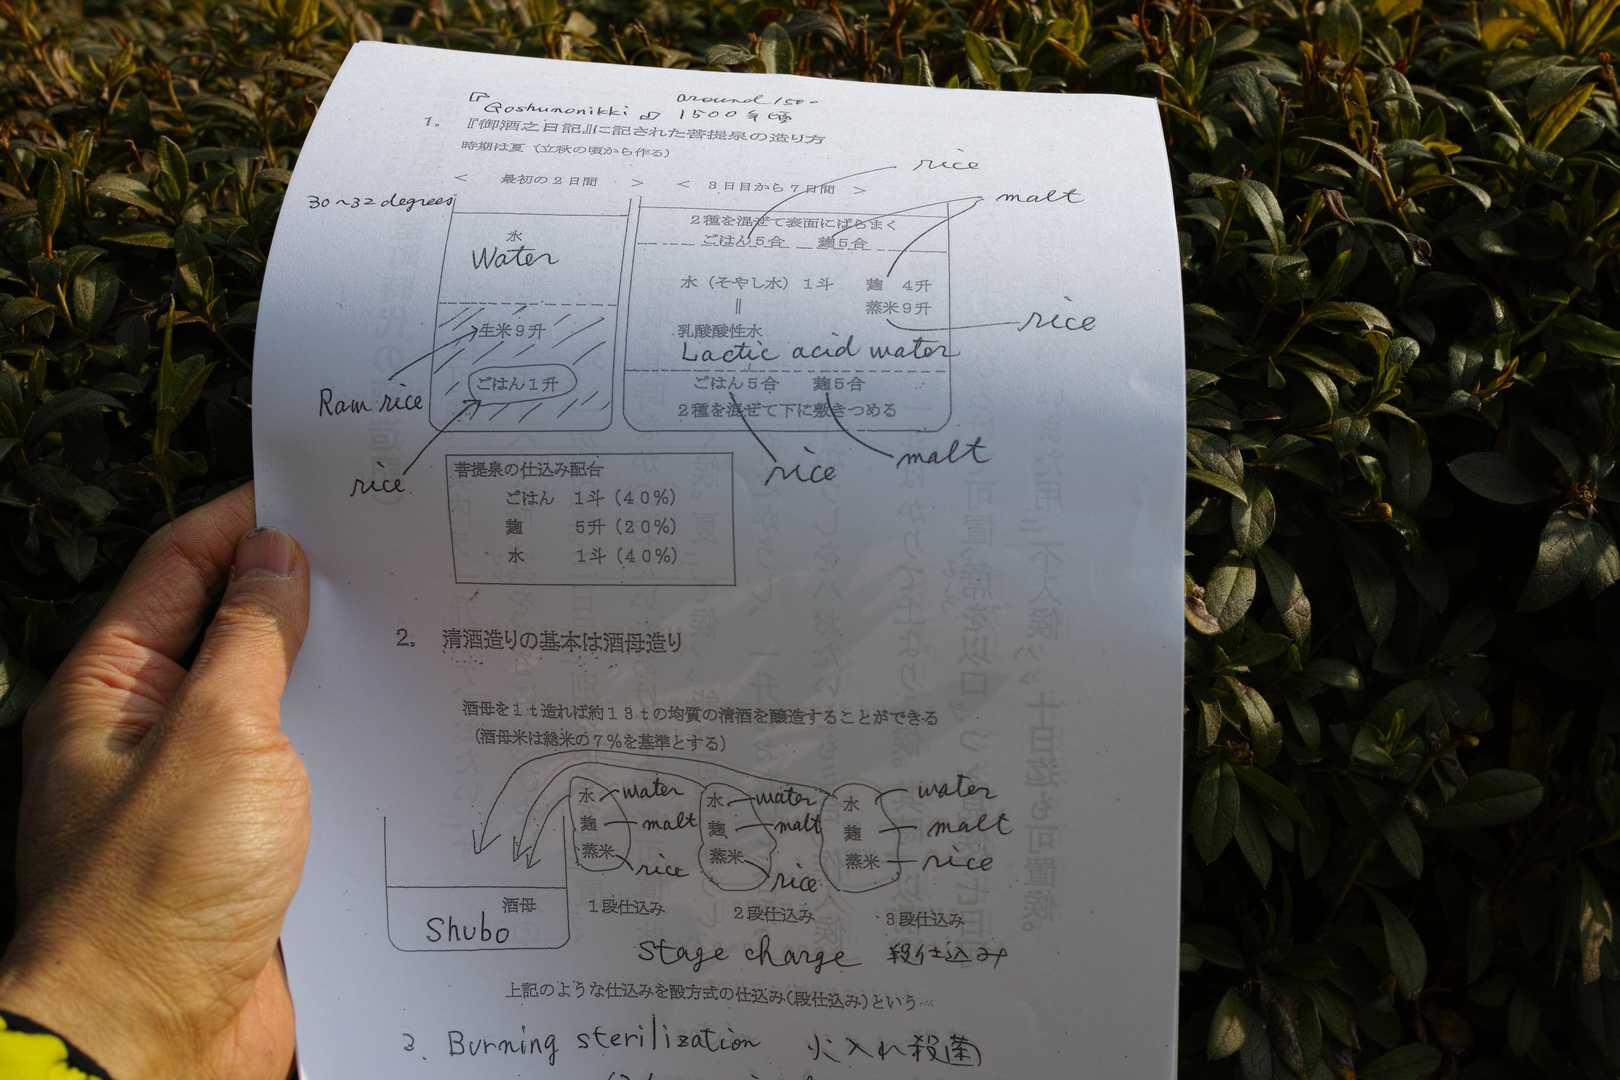 around 150-
『Goshunonikki』 1500年頃
1。『御酒之日記』に記された菩提泉の造り方
時期は夏（立秋の頃から作る）
＜ 最初の２日間 ＞ ＜ ３日目から７日間 ＞
rice
malt
30~32 degrees
水
Water
生米９升
ごはん１升
Ram rice
rice
２種を混ぜて表面にばらまく
ごはん５合 麹５合
水（そやし水）１斗 麹 ４升
蒸米９升
rice
||
乳酸酸性水
Lactic acid water
ごはん５合 麹５合
２種を混ぜて下に敷きつめる
rice
malt
菩提泉の仕込み配合
ごはん １斗（４０％）
麹 ５升（２０％）
水 １斗（４０％）
2。 清酒造りの基本は酒母造り
酒母を１ｔ造れば約１３ｔの均質の清酒を醸造することができる
（酒母米は総米の７％を基準とする）
水 water 水 water 水 water
麹 malt 麹 malt 麹 malt
蒸米 rice 蒸米 rice 蒸米 rice
酒母
Shubo
１段仕込み ２段仕込み ３段仕込み
Stage charge 段仕込み
上記のような仕込みを酘方式の仕込み（段仕込み）という…
3. Burning sterilization 火入れ殺菌